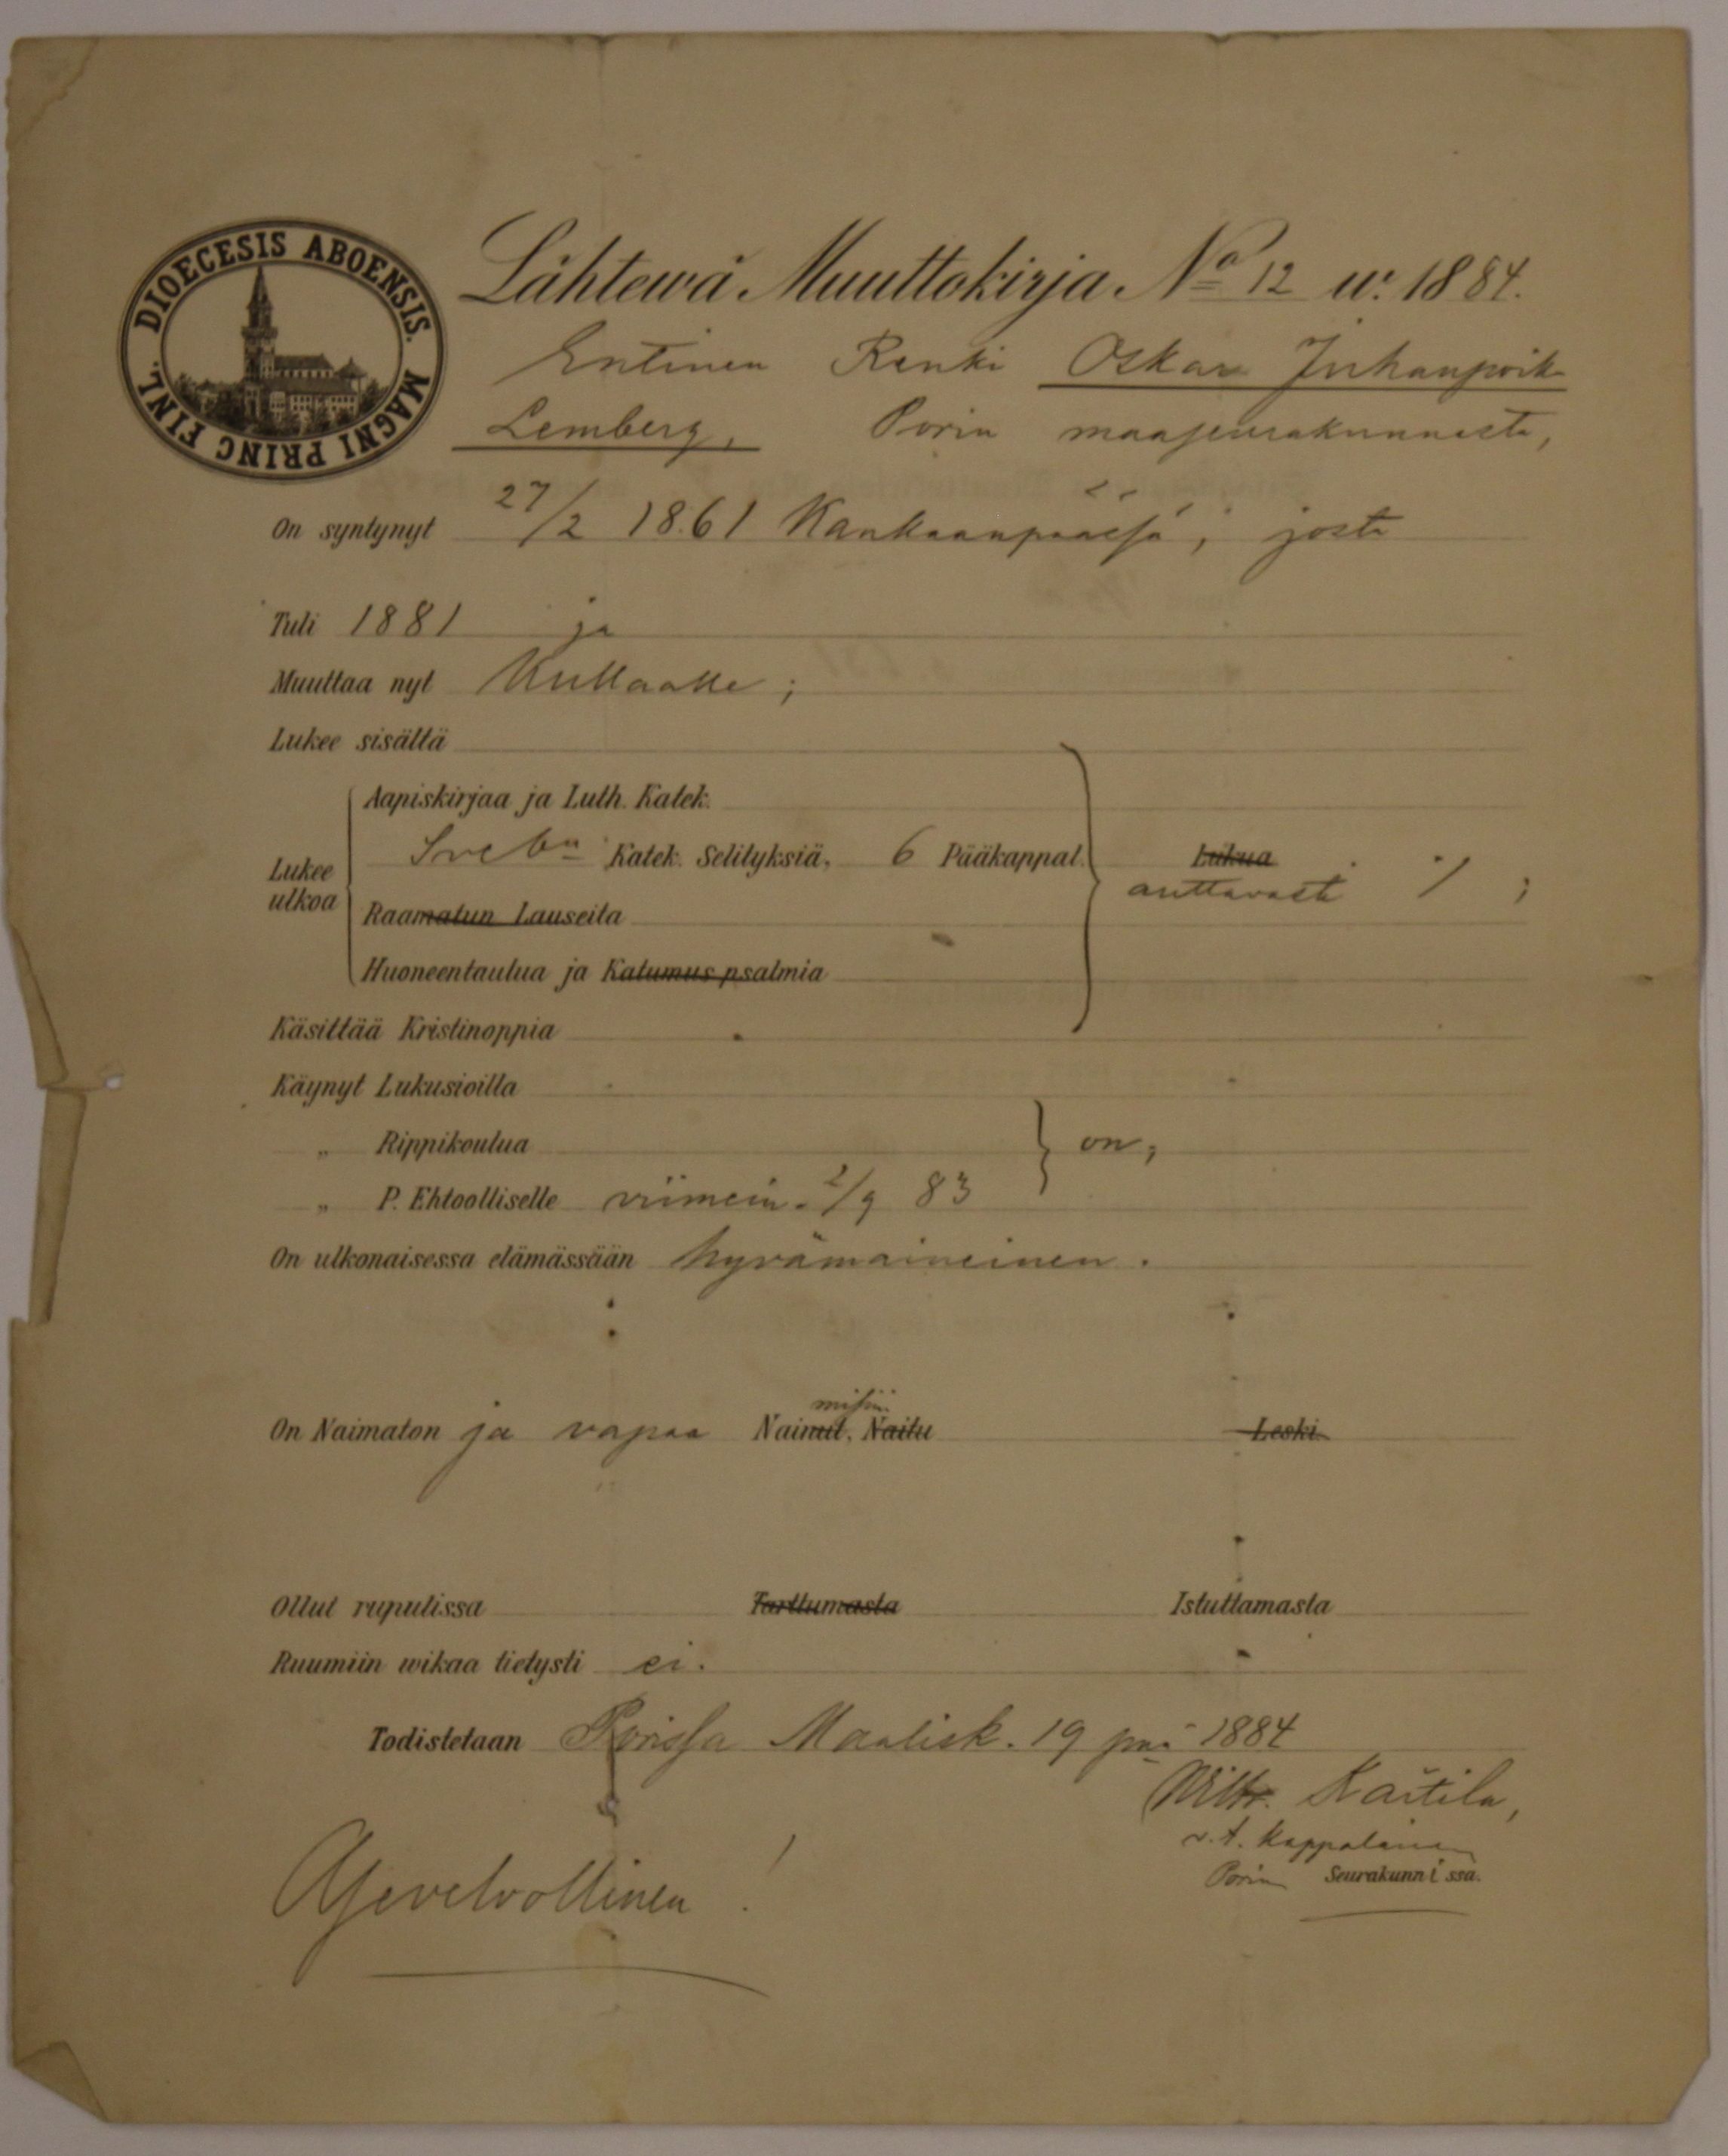 DIOECESIS ABOENSIS. MAGNI PRINC FINL.
Lähtewä Muuttokirja No 12 w. 1884.
Entinen Renki Oskar Juhanpoik
Lemberg, Porin maaseurakunnasta,
On syntynyt 27/2 1861 Kankaanpäässä; josta
Tuli 1881 ja
Muuttaa nyt Kullaalle;
Lukee sisältä
Aapiskirjaa ja Luth. Katek.
Lukee ulkoa
Sveb:n Katek. Selityksiä, 6 Pääkappal. Lukua
auttavasti ;
Raamatun Lauseita
Huoneentaulua ja Katumus psalmia
Käsittää Kristinoppia
Käynyt Lukusioilla
„ Rippikoulua on;
„ P. Ehtoolliselle viimein. 2/9 83
On ulkonaisessa elämässään hyvämaineinen.
On Naimaton ja vapaa Nainut, Naitu Leski.
Ollut rupulissa Tarttumasta Istuttamasta
Ruumiin wikaa tietysti ei.
Todistetaan Porissa Maalisk. 19 pnä 1884
Kaitila,
v.t. Kappalainen
Porin Seurakunn i ssa.
Asevelvollinen!